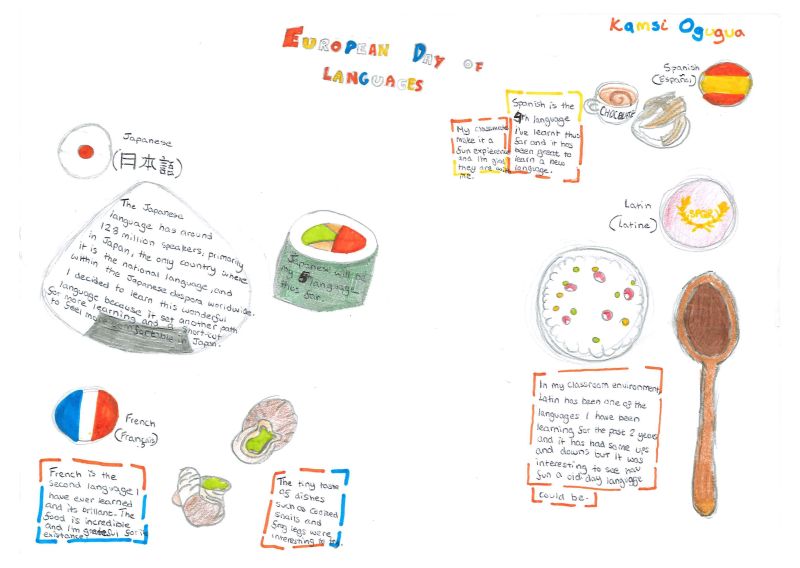 EUROPEAN DAY OF
LANGUAGES
Kamsi Ogugua
Spanish
(Español)
CHOCOLATE
Spanish is the
4th language
i've learnt thus
far and it has
been great to
learn a new
language.
My classmates
make it a
fun expierence
and I'm glad
they are with
me.
Japanese
(日本語)
The Japanese
language has around
128 million speakers, primarily
in Japan, the only country where
it is the national language, and
within the Japanese diaspora worldwide.
I decided to learn this wonderful
language because it set another path
for more learning and a short-cut
to feel more comfortable in Japan.
Japanese will be
my 5 language
thus far.
Latin
(Latine)
SPQR
In my classroom environment,
Latin has been one of the
languages I have been
learning for the past 2 years
and it has had some ups
and downs but it was
interesting to see how
fun a old day language
could be.
French
(Français)
French is the
second language I
have ever learned
and its brillant. The
food is incredible
and I'm grateful for its
existance.
The tiny taste
of dishes
such as cooked
snails and
frog legs were
interesting to